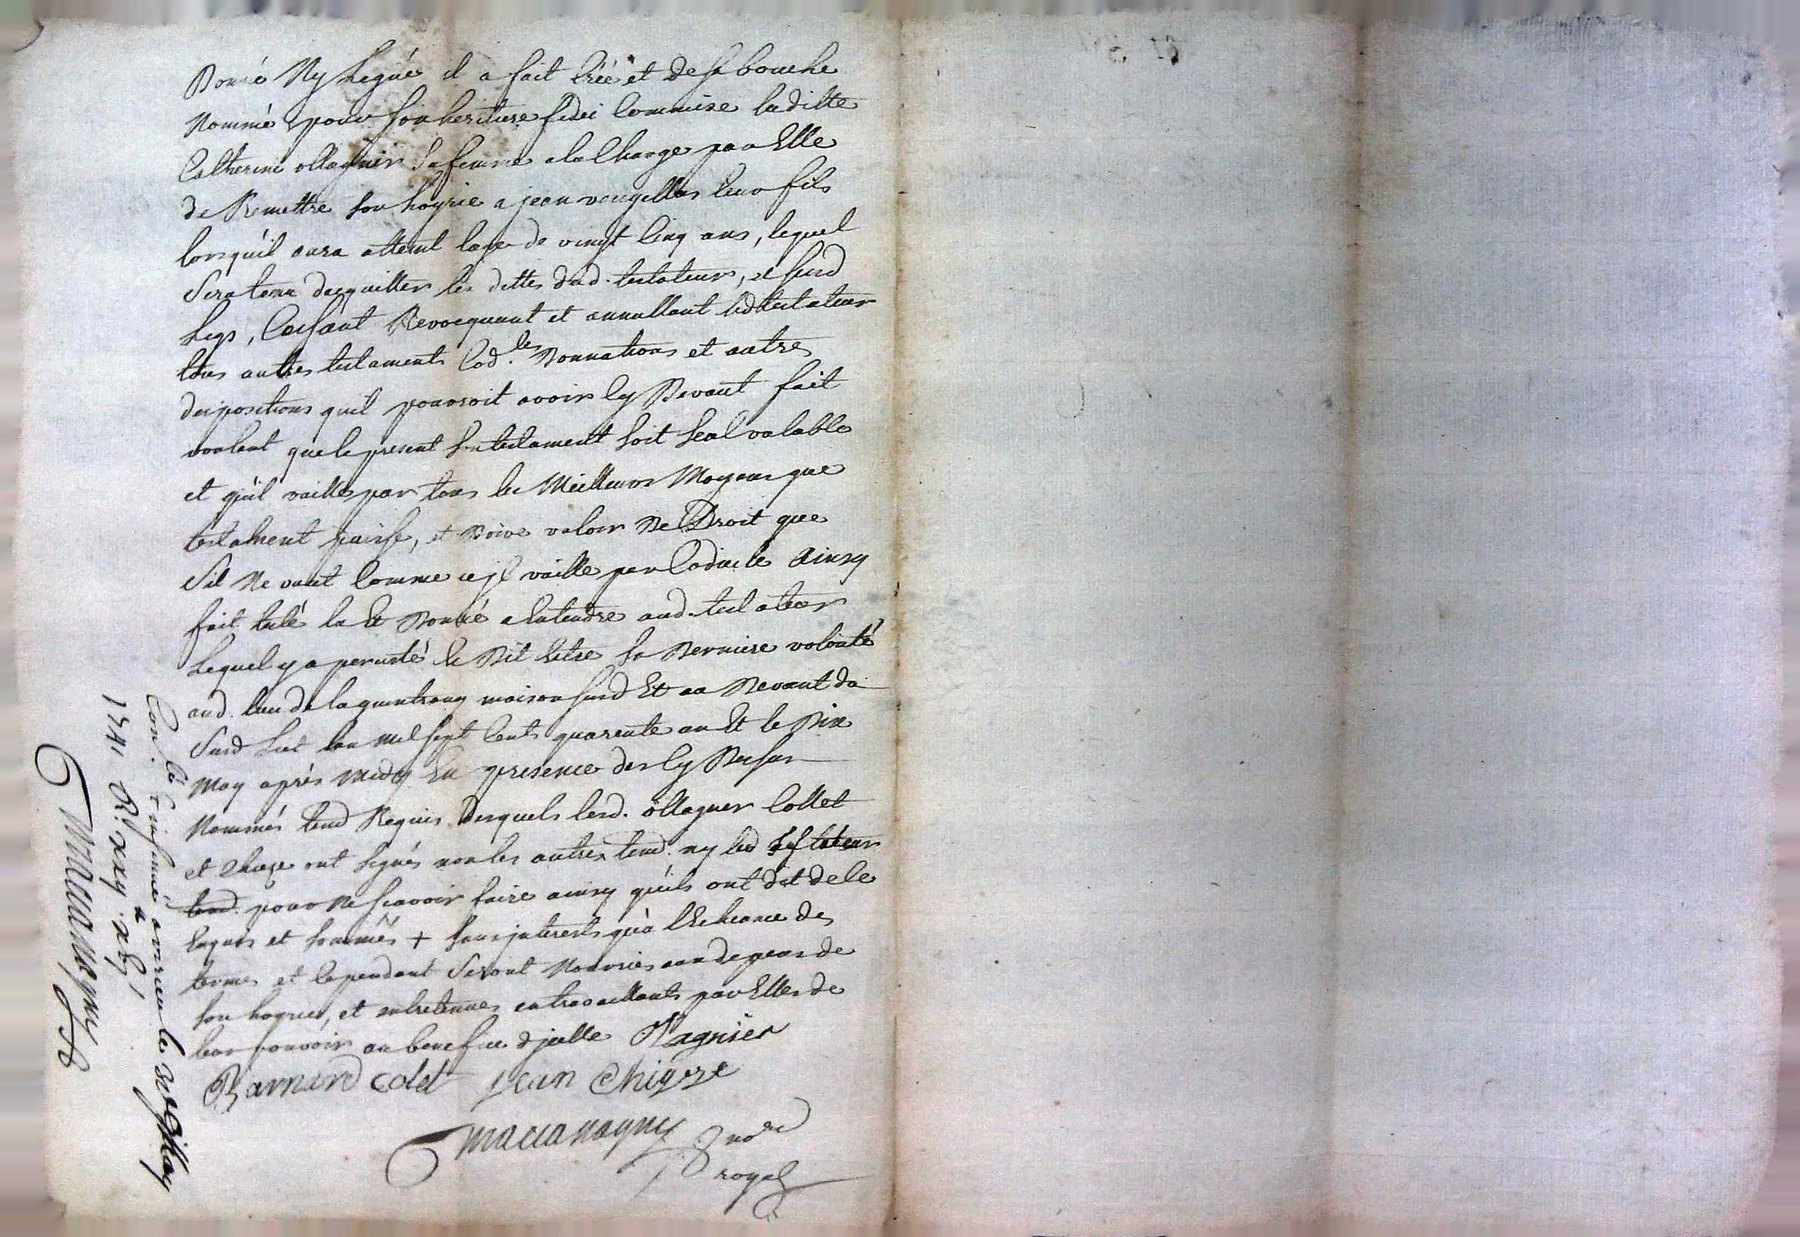 Donné Ny Legué il a fait créé et de sa bouche
Nommé pour son heritiere fidei Commise laditte
Catherine ollagnier sa femme a la Charge par Elle
de Remettre son hoyrie a jean vougellas leur fils
lorsquil aura atteint lage de vingt Cinq ans, lequel
Sera tenu dacquitter les dettes dud. testateur, et susd
Legs, Cassant Revocquant et annullant led testateur
tous autres testaments Cod.les Donnations et autres
dispositions quil pourroit avoir Cy Devant fait
voulant que le present sn testament soit seal valable
et quil vaille par tous les Meilleurs Moyens que
testament puisse, et Doive valoir De Droit que
Sil Ne vaut Comme tel vaille par Codicile Ainsy
fait leu la Et Donné a Entendre aud. testateur
Lequel y a percisté Et Dit Estre sa Derniere volonté
aud. lieu de maison susd Et au Devant du
Susd L'an mil sept Cents quarente un Et le Dix
May après midy En presence des Cy Dessus
Nommés tms Requis Desquels lesd. ollagner Collet
et ont signés non les autres tms. ny led testateur
pour Ne scavoir faire ainsy quils ont dit de ce
Enquis et sommés + sans interests qu'à l'Echeance des
termes et cependant Seront Nourries aux depens de
son hoyrie, et entretenues en travaillants par Elles de
leur pouvoir au benefice d'icelle Olagnier
Barnard Colet Jean
Maccanagny
no.re
royal
Con.lé
1741
Maccanagny